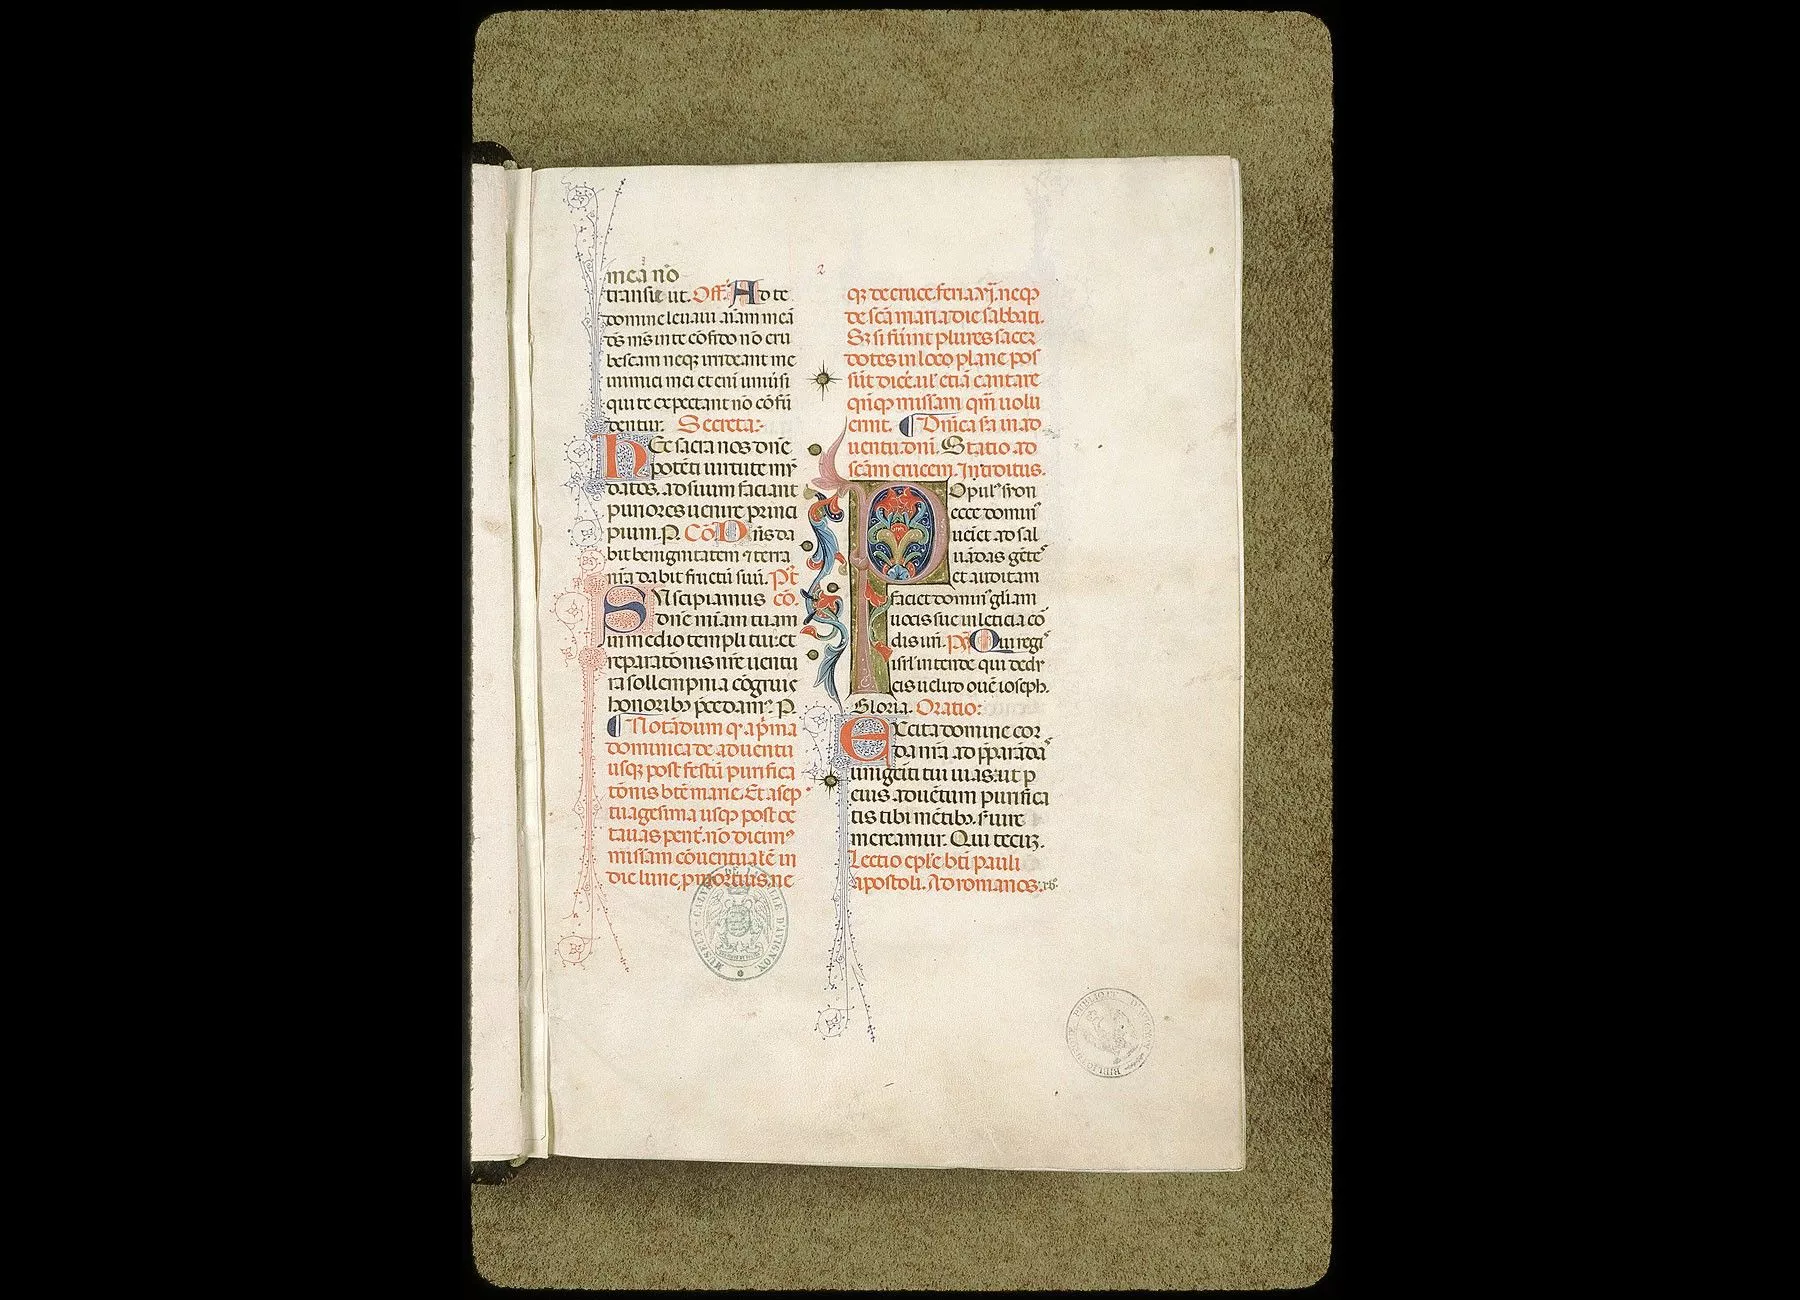 meā nō
transiet ut. Off. Ad te
domine leuaui aīam meā
ds ms in te cōfido nō eru
bescam neqz irrideant me
inimici mei et eni uniūsi
qui te expectant nō cōfū
dentur. Secreta:
hEc sacra nos dne
potēti uirtute mū
datos. ad suum faciant
puriores uenire princi
pium. P. Cō Dn̄s da
bit benignitatem ⁊ terra
nr̄a dabit fructū suū. Pt
SUscipiamus cō.
dn̄e mīam tuam
in medio templi tui: et
reparatōnis nr̄e uentu
ra sollempnia cōgruis
honoribꝫ pcedamꝰ. P.
¶ Notādum qꝫ a pima
dominica de aduentu
usqꝫ post festū purifica
tōnis btē marie. Et a sep
tuagesima usqꝫ post oc
tauas pent. nō dicimꝰ
missam cōuentualē in
die lune p mortuis ne
2
qꝫ de cruce feria vj. neqꝫ
de scā maria die sabbati.
Sꝫ si fūint plures sacer
dotes in loco plane pos
sūt dicē. ul' etiā cantare
qūqꝫ missam qm̄ uolu
erint. ¶ Dn̄ica scdā in ad
uentu dnī. Statio ad
scām crucem. Introitus.
POpulꝰ syon
ecce dominꝰ
ueniet ad sal
uādas gētes
et auditam
faciet dominꝰ gl'iam
uocis sue in leticia cor
dis urī. Ps Qui regis
isrl' intende qui dedu
cis uelud ouē ioseph.
Gloria. Oratio:
EXcita domine cor
da nr̄a ad pparādas
unigēiti tui uias: ut p
eius aduētum purifica
tis tibi mētibꝫ. s'uire
mereamur. Qui tecuꝫ.
Lectio epl'e bti pauli
apostoli. Ad romanos. xv.
MUSEUM CALVET DE LA VILLE D'AVIGNON
BIBLIOTHEQUE